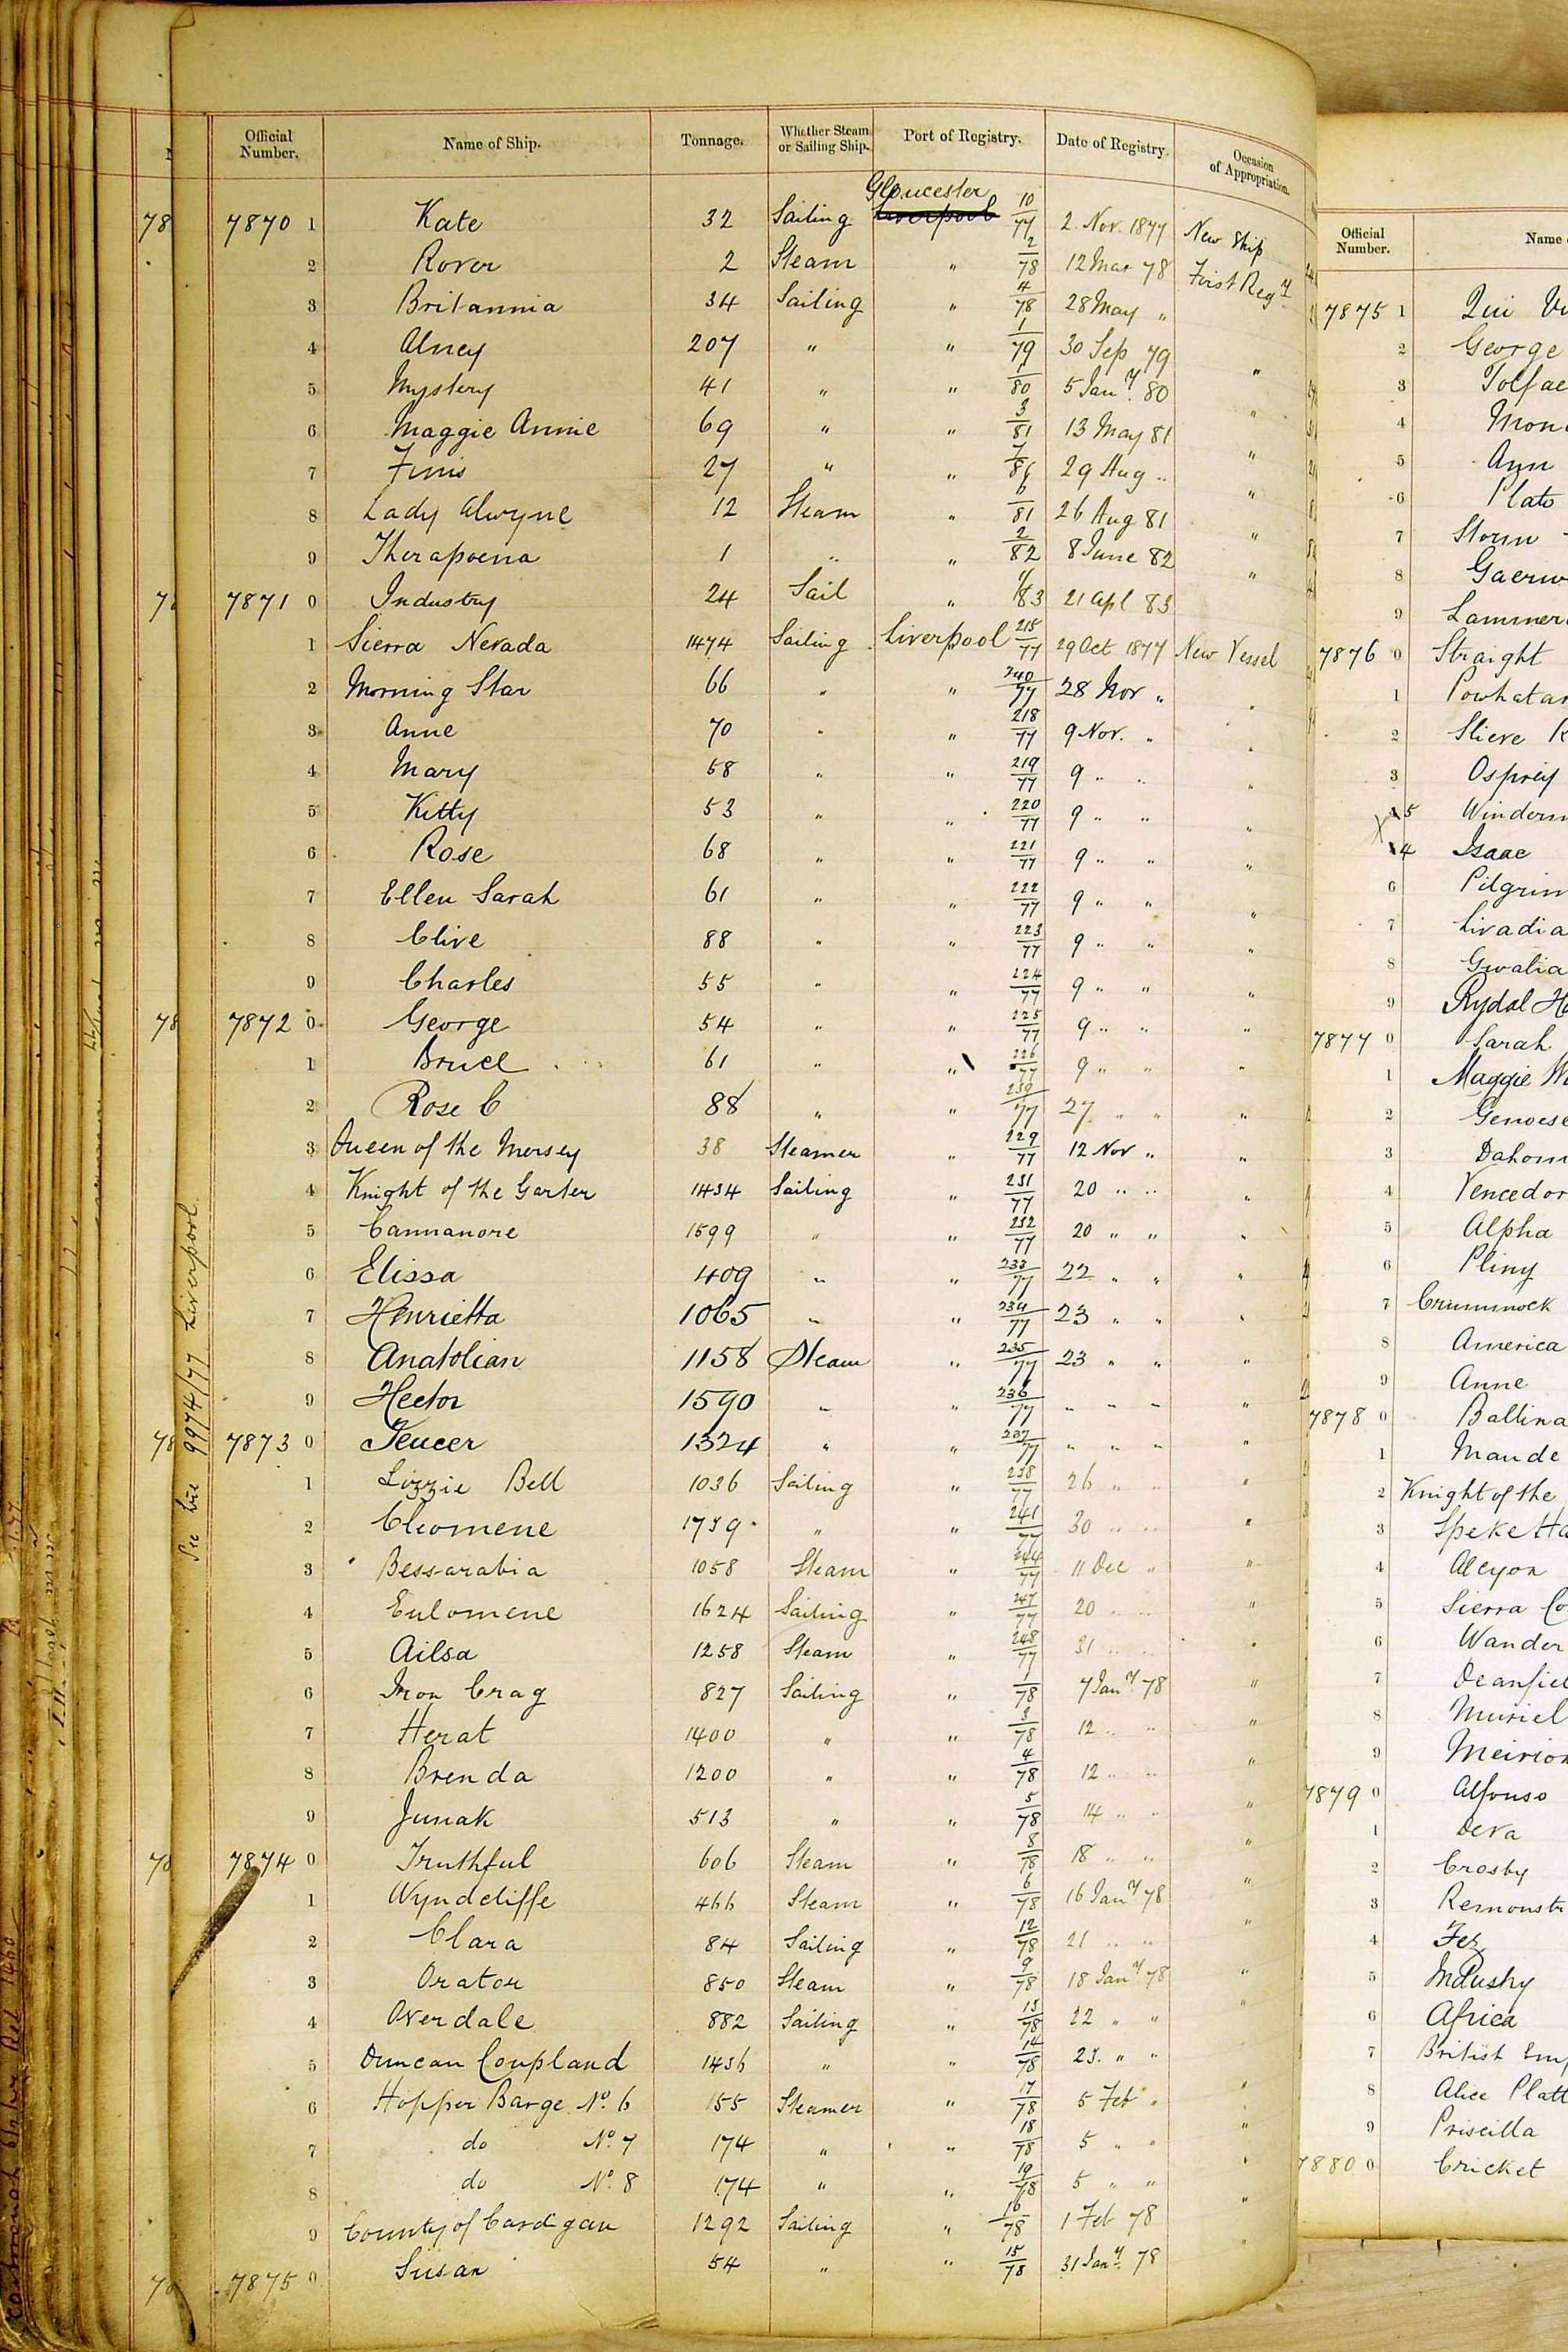 Official Number. Name of Ship. Tonnage. Whether Steam or Sailing Ship. Port of Registry. Date of Registry. Occasion of Appropriation.
Gloucester
78 7870 1 Kate 32 Sailing Liverpool 10/77 2 Nov. 1877 New Ship
2 Rover 2 Steam " 2/78 12 Mar 78 First Regy
3 Britannia 34 Sailing " 4/78 28 May "
4 Alney 207 " " 1/79 30 Sep 79 "
5 Mystery 41 " " /80 5 Jany. 80 "
6 Maggie Annie 69 " " 3/81 13 May 81 "
7 Finis 27 " " 7/81 29 Aug " "
8 Lady Alwyne 12 Steam " 6/81 26 Aug 81 "
9 Therapoena 1 " " 2/82 8 June 82 "
7871 0 Industry 24 Sail " 1/83 21 Apl 83
1 Sierra Nevada 1474 Sailing Liverpool 215/77 29 Oct 1877 New Vessel
2 Morning Star 66 " " 240/77 28 Nov " "
3 Anne 70 " " 218/77 9 Nov. " "
4 Mary 58 " " 219/77 9 " " "
5 Kitty 53 " " 220/77 9 " " "
6 Rose 68 " " 221/77 9 " " "
7 Ellen Sarah 61 " " 222/77 9 " " "
8 Clive 88 " " 223/77 9 " " "
9 Charles 55 " " 224/77 9 " " "
78 7872 0 George 54 " " 225/77 9 " " "
1 Bruce 61 " " 226/77 9 " " "
2 Rose C 88 " " 239/77 27 " " "
3 Queen of the Mersey 38 Steamer " 229/77 12 Nov " "
4 Knight of the Garter 1434 Sailing " 231/77 20 " " "
5 Cannanore 1599 " " 232/77 20 " " "
6 Elissa 409 " " 233/77 22 " " "
7 Henrietta 1065 " " 234/77 23 " " "
8 Anatolian 1158 Steam " 235/77 23 " " "
9 Hector 1590 " " 236/77 " " " "
78 7873 0 Teucer 1324 " " 237/77 " " " "
1 Lizzie Bell 1036 Sailing " 238/77 26 " " "
2 Cleomene 1739 " " 241/77 30 " " "
3 Bessarabia 1058 Steam " 244/77 11 Dec " "
4 Eulomene 1624 Sailing " 247/77 20 " " "
5 Ailsa 1258 Steam " 248/77 31 " " "
6 Iron Crag 827 Sailing " 1/78 7 Jany 78 "
7 Herat 1400 " " 3/78 12 " " "
8 Brenda 1200 " " 4/78 12 " " "
9 Junak 513 " " 5/78 14 " " "
7874 0 Truthful 606 Steam " 8/78 18 " " "
1 Wyndcliffe 466 Steam " 6/78 16 Jany 78 "
2 Clara 84 Sailing " 12/78 21 " " "
3 Orator 850 Steam " 9/78 18 Jany 78 "
4 Overdale 882 Sailing " 13/78 22 " " "
5 Duncan Coupland 1436 " " 14/78 23. " "
6 Hopper Barge No. 6 155 Steamer " 17/78 5 Feb " "
7 do No. 7 174 " " 18/78 5 " " "
8 do No. 8 174 " " 19/78 5 " " "
9 County of Cardigan 1292 Sailing " 16/78 1 Feb 78 "
7875 0 Susan 54 " " 15/78 31 Jany 78 "
9974/77 Liverpool
Official Number. Name
7875 1 Qui
2 George
3
4
5 Ann
6 Plato
7 Storm
8
9
7876 0 Straight
1
2 Slieve
3 Osprey
5
4 Isaac
6
7 Livadia
8 Gwalia
9 Rydal
7877 0 Sarah
1 Maggie
2
3
4
5 Alpha
6 Pliny
7 Crummock
8 America
9 Anne
7878 0
1 Maude
2 Knight of the
3 Speke
4 Alcyon
5 Sierra
6
7
8 Muriel
9
7879 0 Alfonso
1 Deva
2 Crosby
3
4 Fez
5 Industry
6 Africa
7 British
8 Alice
9 Priscilla
7880 0 Cricket